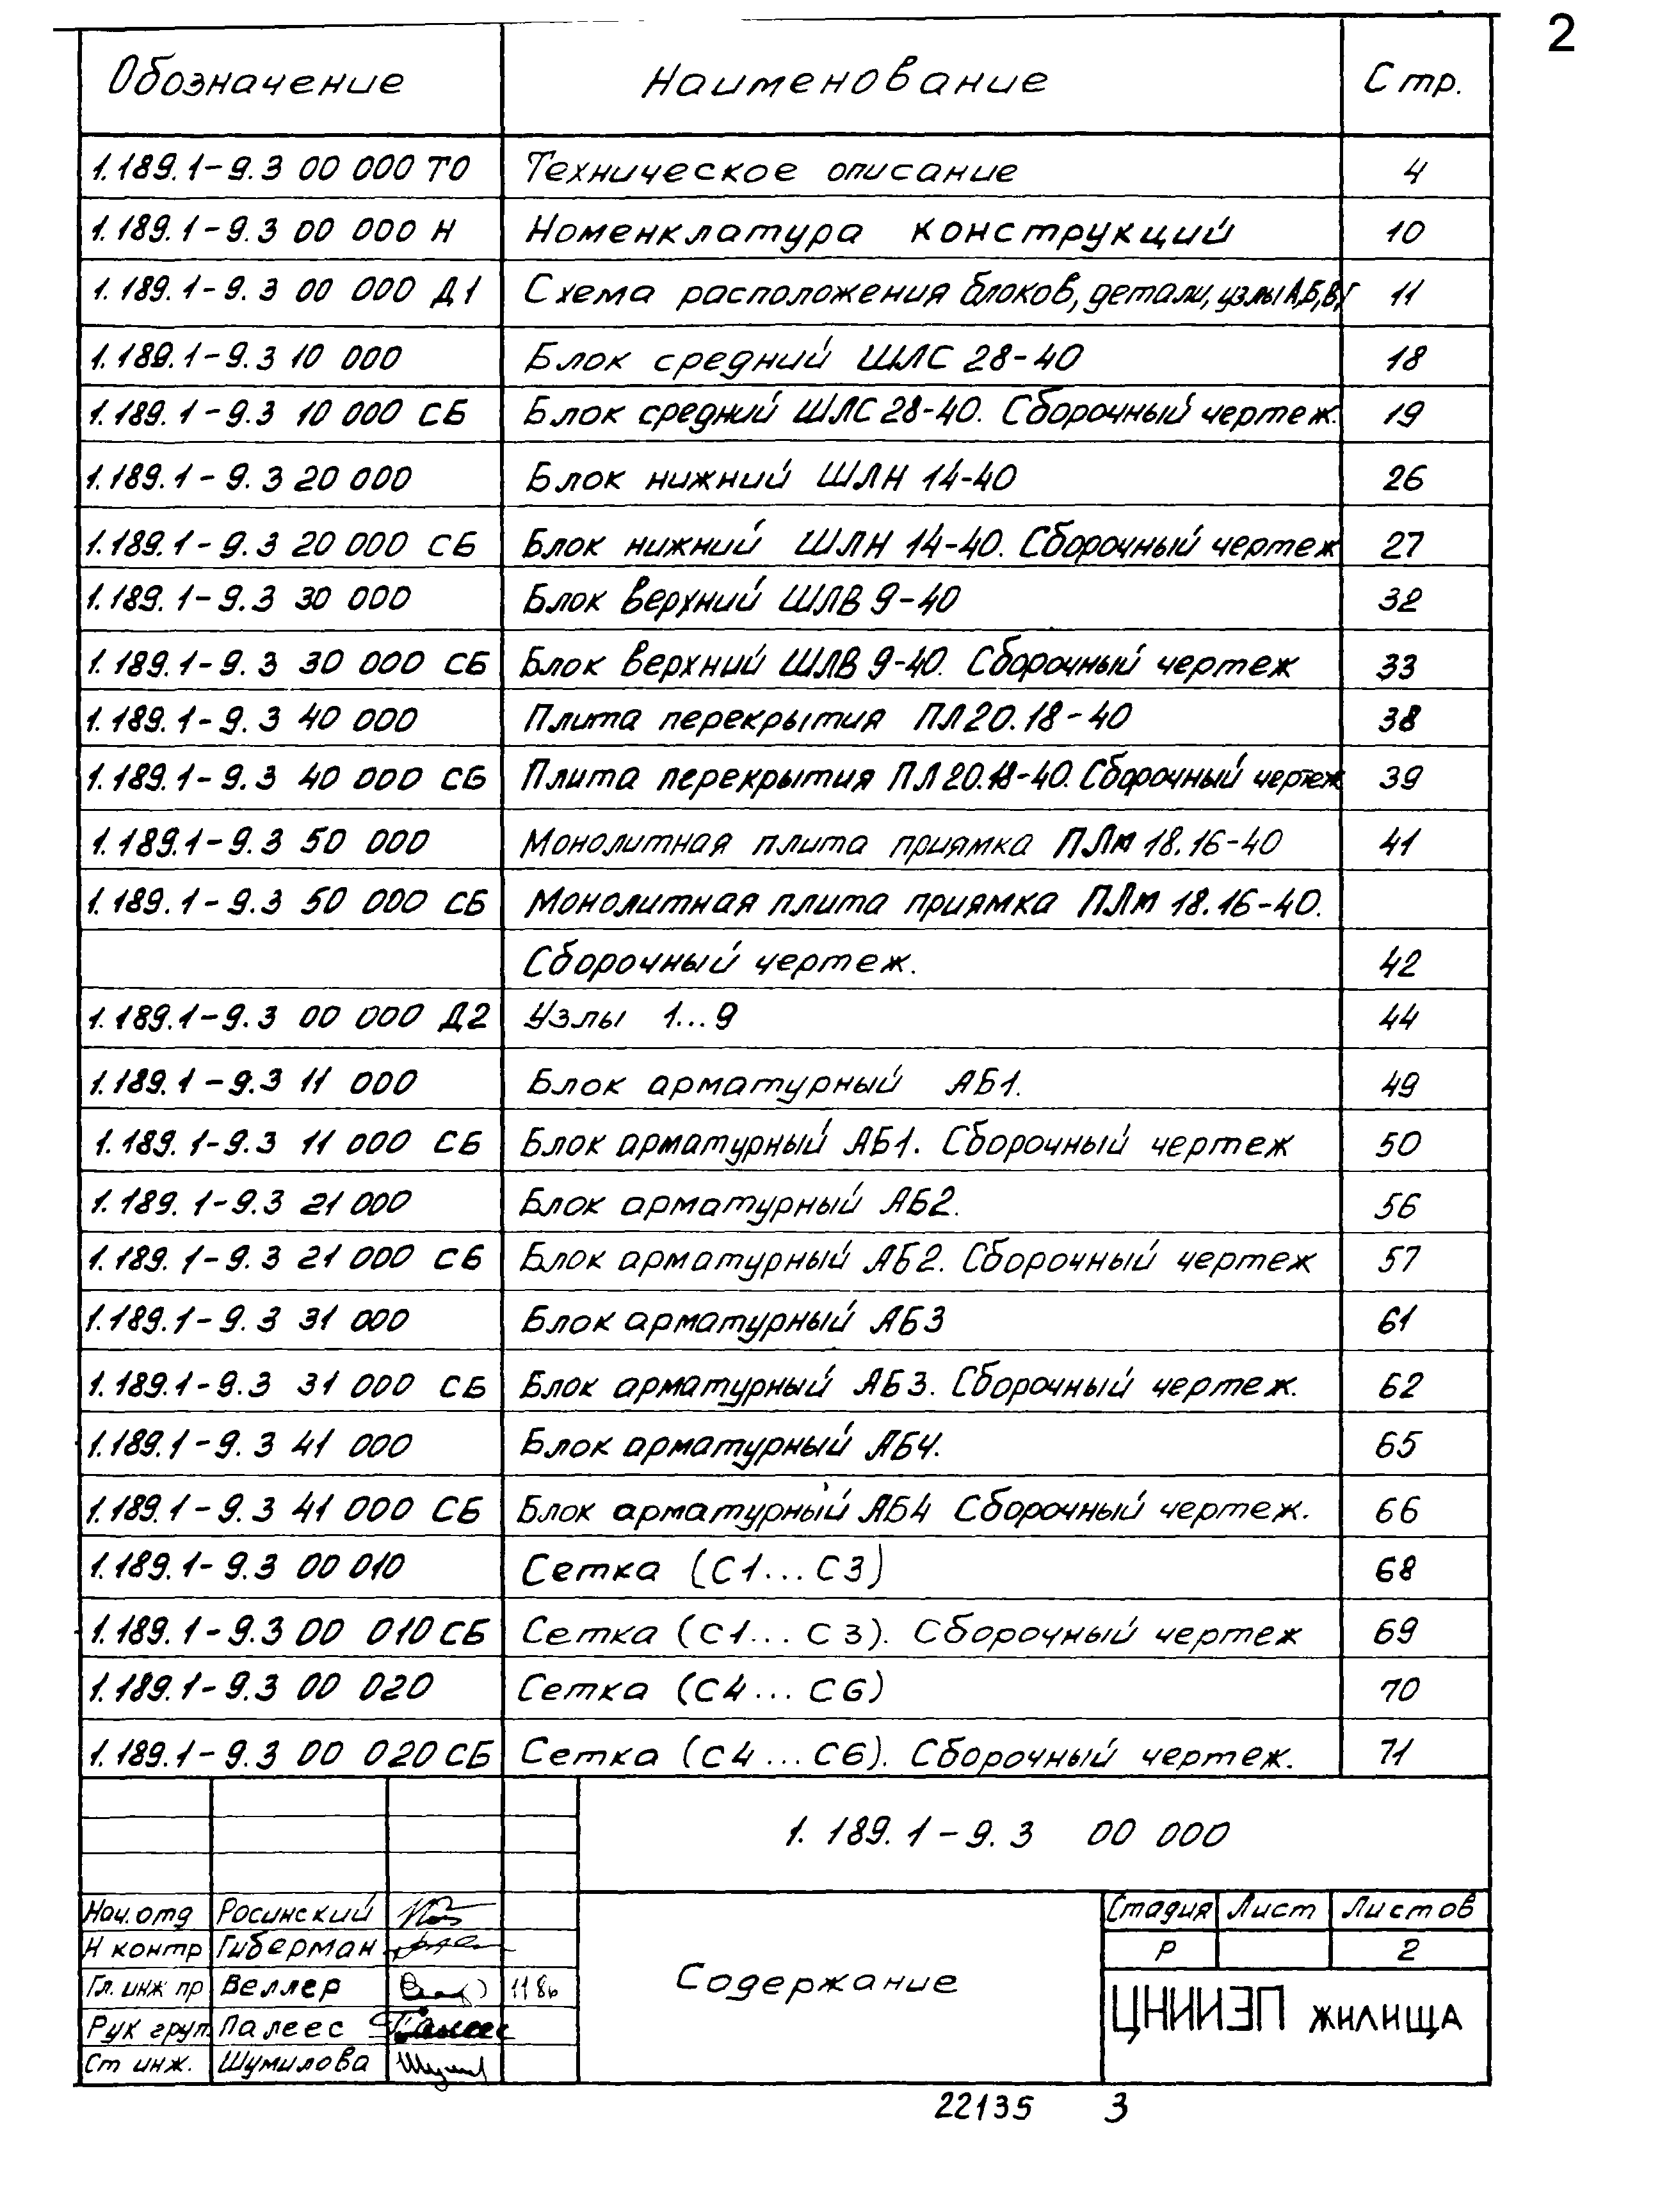 2
Обозначение Наименование Стр.
1.189.1-9.3 00 000 ТО Техническое описание 4
1.189.1-9.3 00 000 Н Номенклатура конструкций 10
1.189.1-9.3 00 000 Д1 Схема расположения блоков, детали, узлы А,Б,В,Г 11
1.189.1-9.3 10 000 Блок средний ШЛС 28-40 18
1.189.1-9.3 10 000 СБ Блок средний ШЛС 28-40. Сборочный чертеж. 19
1.189.1-9.3 20 000 Блок нижний ШЛН 14-40 26
1.189.1-9.3 20 000 СБ Блок нижний ШЛН 14-40. Сборочный чертеж 27
1.189.1-9.3 30 000 Блок верхний ШЛВ 9-40 32
1.189.1-9.3 30 000 СБ Блок верхний ШЛВ 9-40. Сборочный чертеж 33
1.189.1-9.3 40 000 Плита перекрытия ПЛ20.18-40 38
1.189.1-9.3 40 000 СБ Плита перекрытия ПЛ20.18-40. Сборочный чертеж 39
1.189.1-9.3 50 000 Монолитная плита приямка ПЛм 18.16-40 41
1.189.1-9.3 50 000 СБ Монолитная плита приямка ПЛм 18.16-40.
Сборочный чертеж. 42
1.189.1-9.3 00 000 Д2 Узлы 1...9 44
1.189.1-9.3 11 000 Блок арматурный АБ1. 49
1.189.1-9.3 11 000 СБ Блок арматурный АБ1. Сборочный чертеж 50
1.189.1-9.3 21 000 Блок арматурный АБ2. 56
1.189.1-9.3 21 000 СБ Блок арматурный АБ2. Сборочный чертеж 57
1.189.1-9.3 31 000 Блок арматурный АБ3 61
1.189.1-9.3 31 000 СБ Блок арматурный АБ3. Сборочный чертеж. 62
1.189.1-9.3 41 000 Блок арматурный АБ4. 65
1.189.1-9.3 41 000 СБ Блок арматурный АБ4 Сборочный чертеж. 66
1.189.1-9.3 00 010 Сетка (С1...С3) 68
1.189.1-9.3 00 010 СБ Сетка (С1...С3). Сборочный чертеж 69
1.189.1-9.3 00 020 Сетка (С4...С6) 70
1.189.1-9.3 00 020 СБ Сетка (С4...С6). Сборочный чертеж. 71
1.189.1-9.3 00 000
Нач. отд Росинский
Н контр Гиберман
Гл. инж пр Веллер 11 86
Рук груп. Палеес
Ст инж. Шумилова
Содержание
Стадия Лист Листов
Р 2
ЦНИИЭП жилища
22135 3